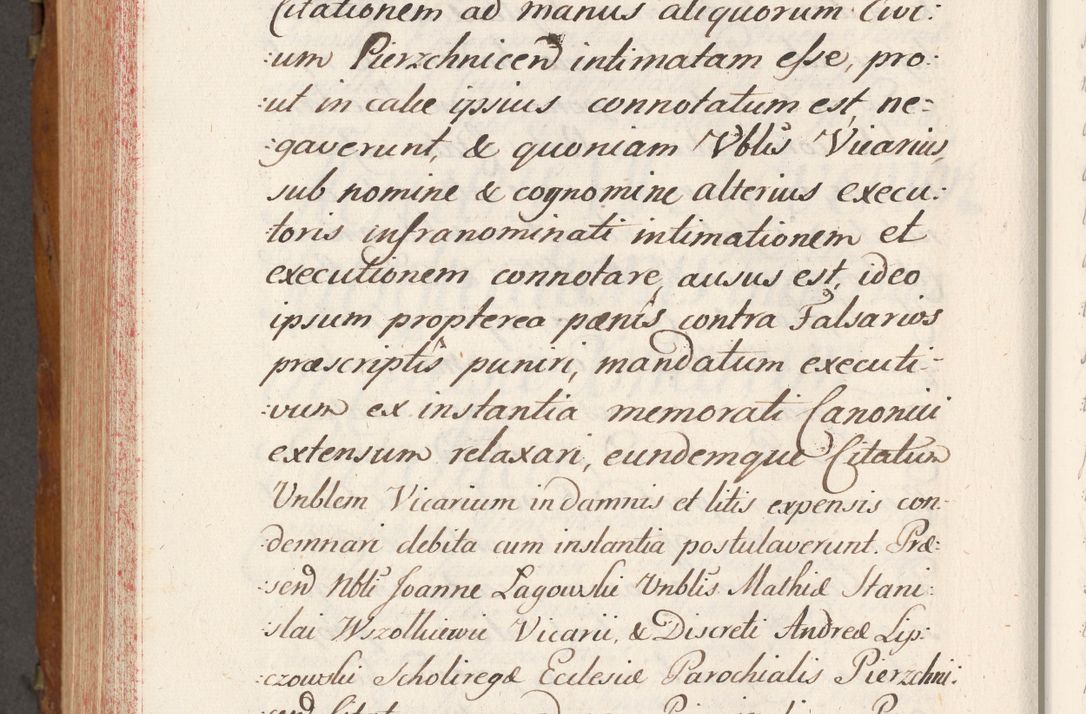 Citationem ad manus aliquorum Civi:
:um Pierzchnicen intimatam esse, pro:
:ut in calce ipsius connotatum est, ne=
:gaverunt, & quoniam Vblis Vicarius,
sub nomine & cognomine alterius execu:
:toris infranominati intimationem et
executionem connotare ausus est, ideo
ipsum propterea pœnis contra Falsarios
præscriptis puniri, mandatum executi-
:vum ex instantia memorati Canonici
extensum relaxari, eundemque Citatum
Vnblem Vicarium in damnis et litis expensis con-
:demnari debita cum instantia postulaverunt. Præ:
:sen Nbli Joanne Lagowski Vnblis Mathiæ Stani:
:slai Wszolkiewic Vicarii, & Discreti Andreæ Lip:
:czowski Scholiregæ Ecclesiæ Parochialis Pierzchni: